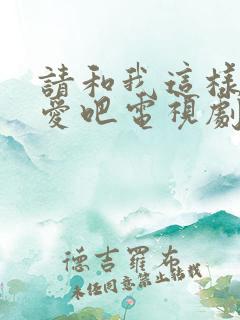 請和我這樣
愛吧電視劇
德吉羅布
未任同意禁止转载